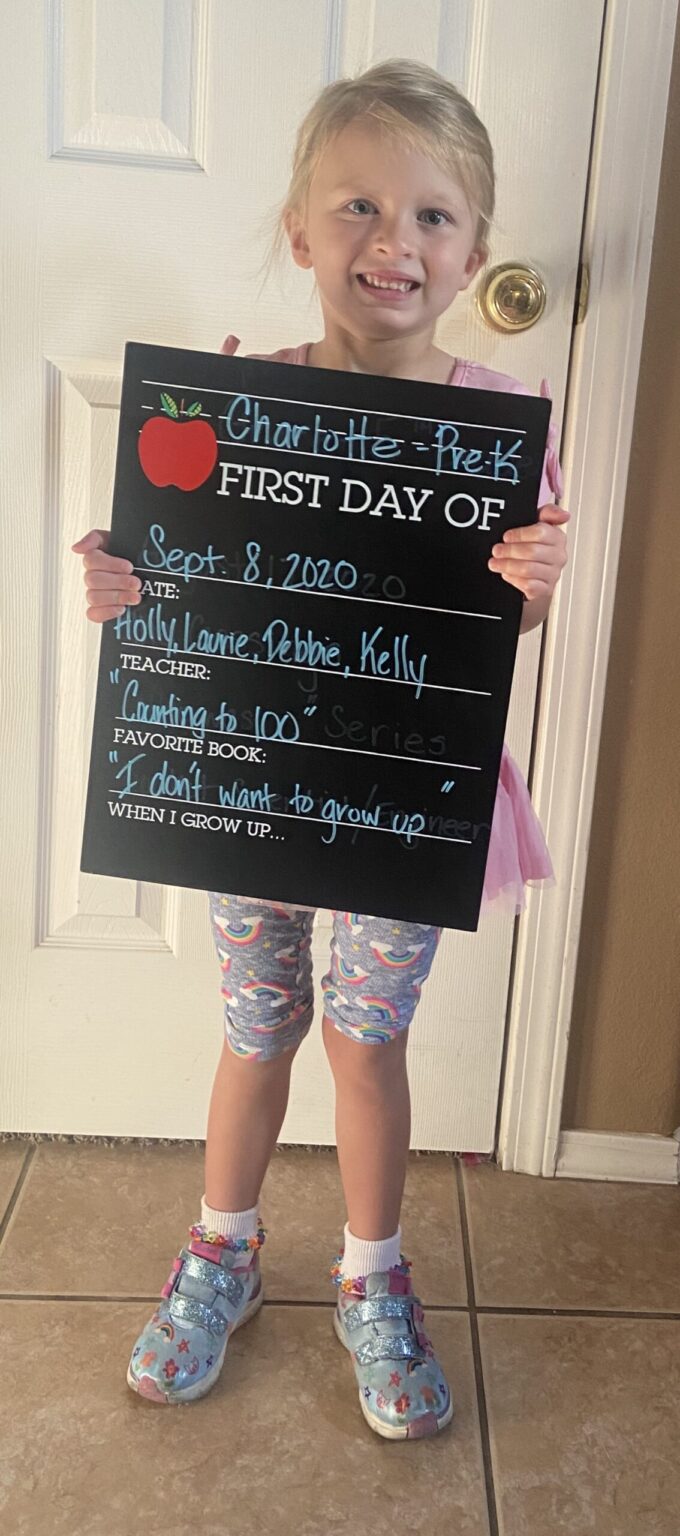 Charlotte - Pre-K
FIRST DAY OF
Sept. 8, 2020
DATE:
Holly, Laurie, Debbie, Kelly
TEACHER:
"Counting to 100" Series
FAVORITE BOOK:
"I don't want to grow up" Engineer
WHEN I GROW UP...